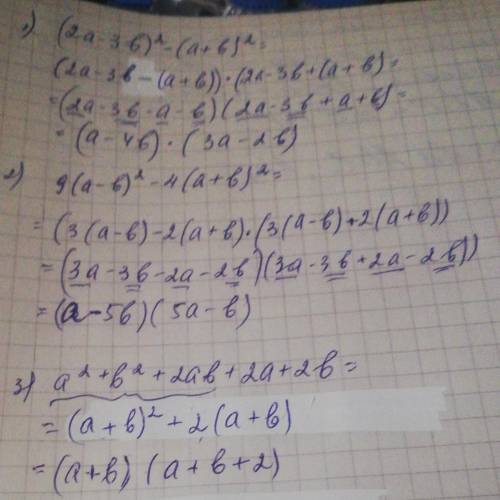 1) (2a-3b)²-(a+b)²=
(2a-3b-(a+b))·(2a-3b+(a+b)=
=(2a-3b-a-b)(2a-3b+a+b)=
=(a-4b)·(3a-2b)
2) 9(a-b)²-4(a+b)²=
=(3(a-b)-2(a+b)·(3(a-b)+2(a+b))
=(3a-3b-2a-2b)(3a-3b+2a-2b))
=(a-5b)(5a-b)
3) a²+b²+2ab+2a+2b=
=(a+b)²+2(a+b)
=(a+b)(a+b+2)